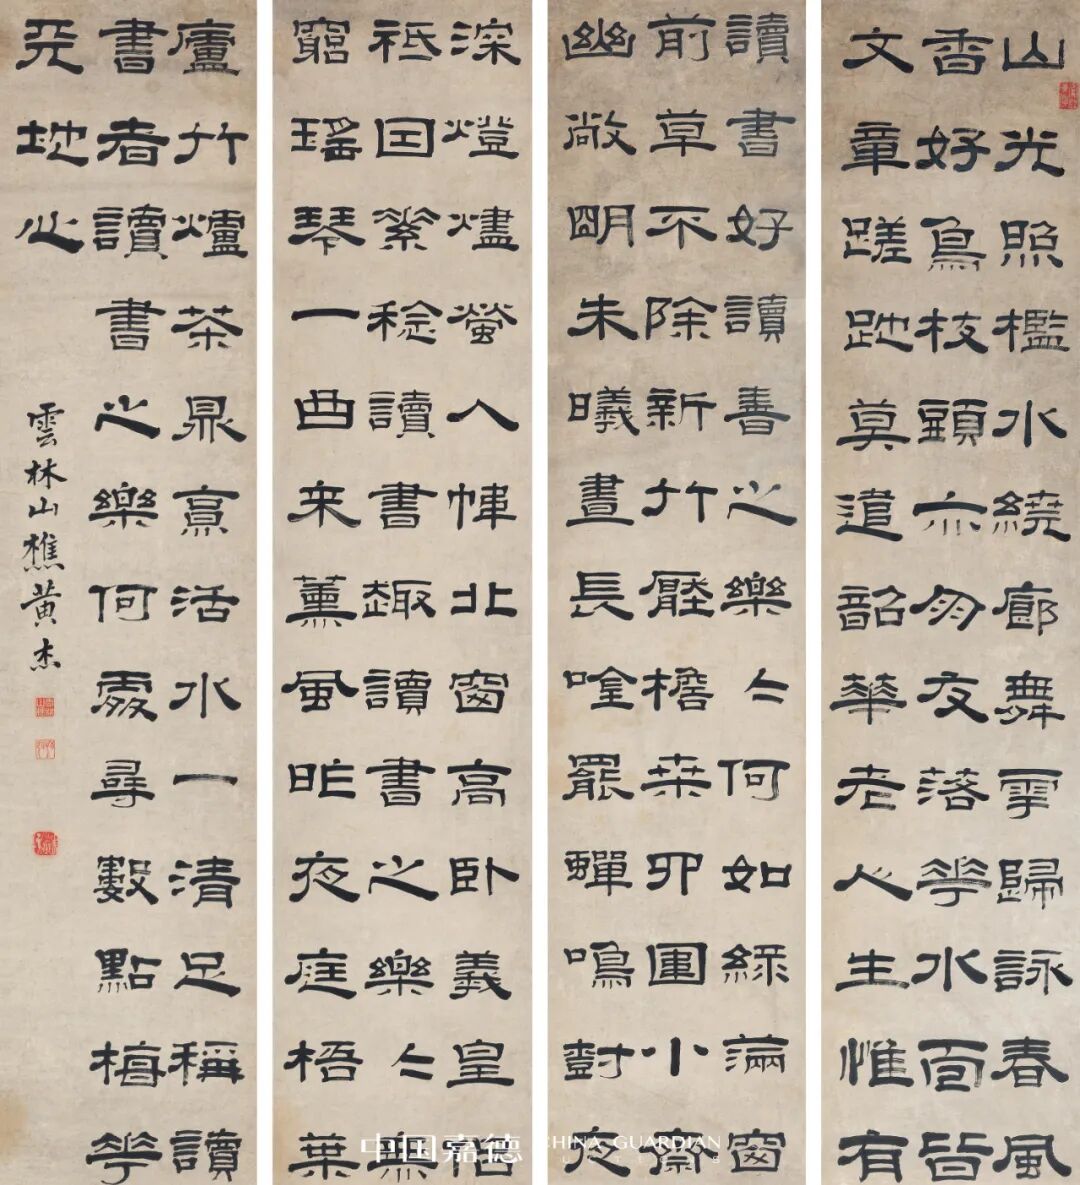 山光照檻水繞廊舞雩歸詠春風
香好鳥枝頭亦朋友落花水面皆
文章蹉跎莫遣韶華老人生惟有
讀書好讀書之樂〻何如綠滿窗
前草不除新竹壓檐桑四圍小齋
幽敞明朱曦晝長唫罷蟬鳴尌夜
深燈燼螢入幃北窗高卧羲皇侶
祗因素稔讀書趣讀書之樂〻無
窮瑤琴一曲来薰風昨夜庭梧葉
廬竹爐茶鼎烹活水一清足稱讀
書者讀書之樂何處尋數點梅花
天地心
雲林山樵黃杰
中国嘉德 CHINA GUARDIAN